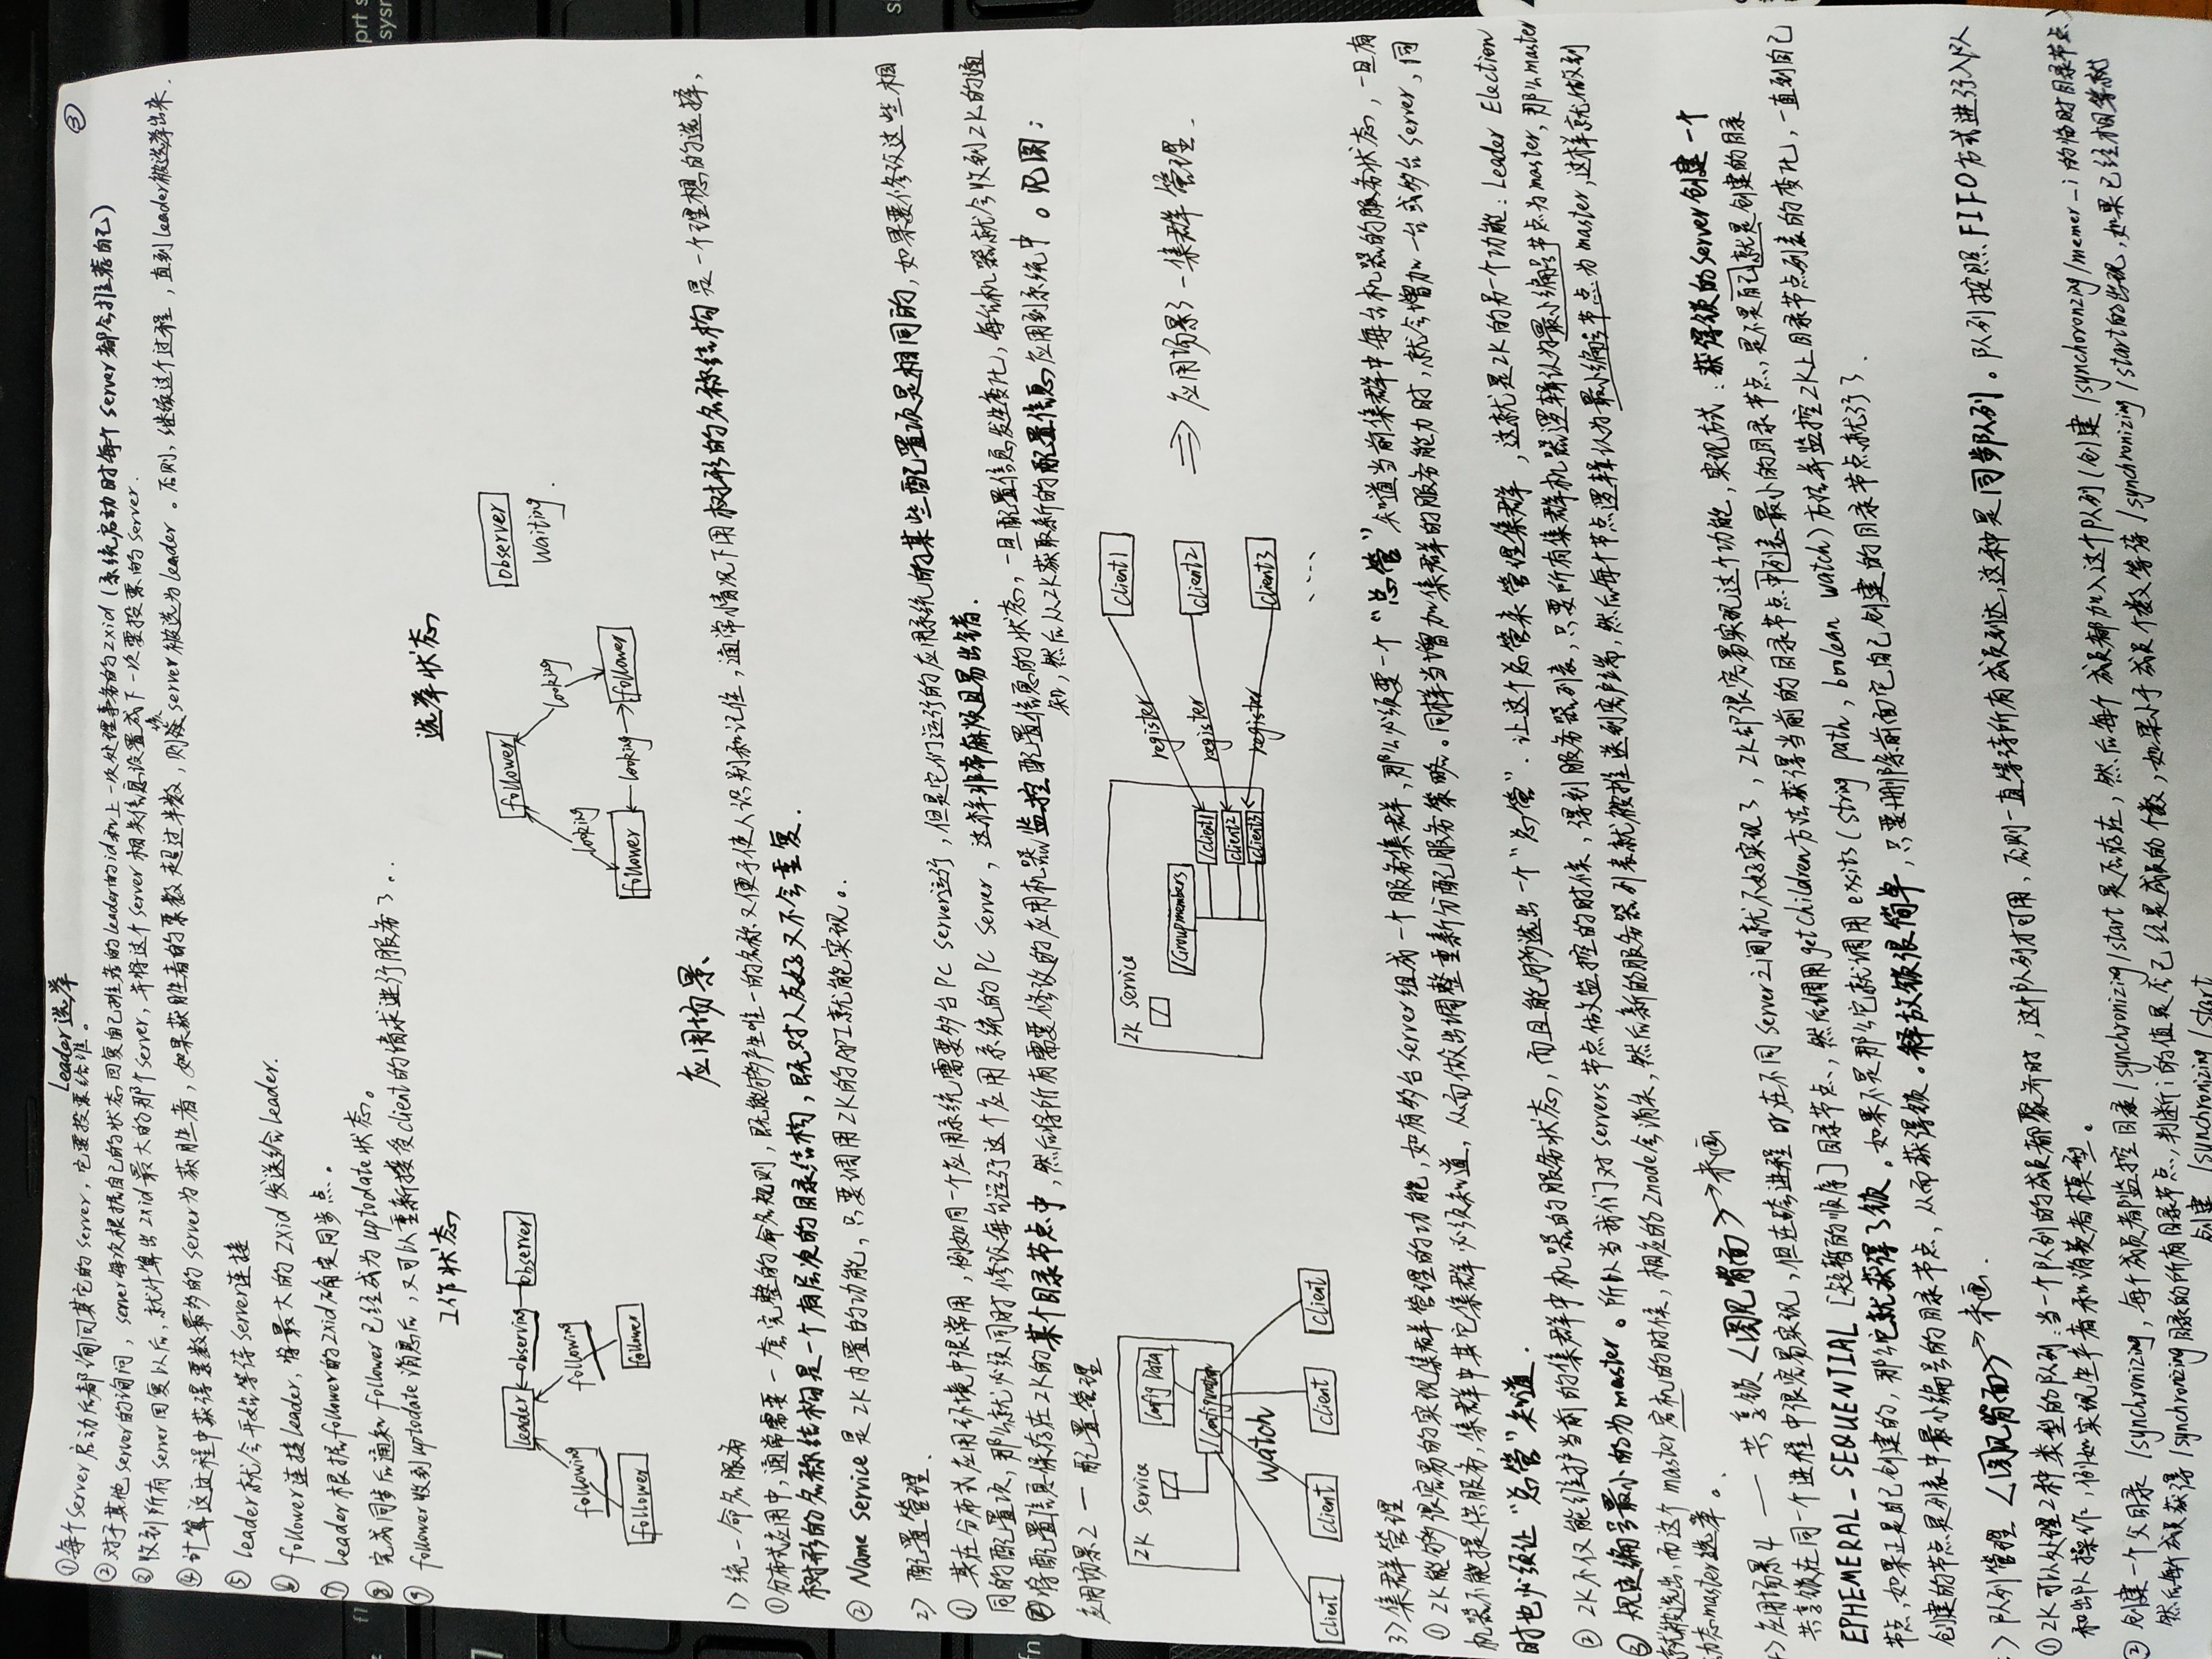 Leader选举
③
①每个server启动后都询问其它的server，它要投票给谁。
②对于其他server的询问，server每次根据自己的状态回复自己推荐的leader的id和上一次处理事务的zxid（系统启动时每个server都会推荐自己）
③收到所有server回复以后，就计算出zxid最大的那个server，并将这个server相关信息设置成下一次要投票的server.
④计算这过程中获得票数最多的server为获胜者，如果获胜者的票数超过半数，则该server被选为leader。否则，继续这个过程，直到leader被选举出来.
⑤leader就会开始等待server连接
⑥follower连接leader，将最大的zxid发送给leader.
⑦leader根据follower的zxid确定同步点。
⑧完成同步后通知follower已经成为uptodate状态。
⑨follower收到uptodate消息后，又可以重新接受client的请求进行服务了..
工作状态
选举状态
leader
observing
observer
following
following
follower
follower
follower
observer
waiting.
looking
looking
follower
looking
follower
应用场景、
1>统一命名服务
①分布式应用中，通常需要一套完整的命名规则，既能够产生唯一的名称又便于使人识别和记住，通常情况下用树形的名称结构是一个理想的选择，
树形的名称结构是一个有层次的目录结构，既对人友好又不会重复.
②Name Service是ZK内置的功能，只要调用ZK的API就能实现。.
2>配置管理.
①其在分布式应用环境中很常用，例如同一个应用系统需要多台PC server运行，但是它们运行的应用系统的某些配置项是相同的，如果要修改这些相
同的配置项，那么就必须同时修改每台运行这个应用系统的PC server，这样非常麻烦且易出错.
②将配置信息保存在ZK的某个目录节点中，然后将所有需要修改的应用机器监控配置信息的状态，一旦配置信息发生变化，每台机器就会收到ZK的通
知，然后从ZK获取新的配置信息应用到系统中。见图：
应用场景2 — 配置管理
ZK Service
Config Data
/Configuration
watch
client
client
client
client
ZK Service
/Groupmembers
/client1
client2
client3
register
register
register
client1
client2
client3
....
⇒应用场景3-集群管理.
3>集群管理
①ZK能够很容易的实现集群管理的功能，如有多台server组成一个服务集群，那么必须要一个“总管”知道当前集群中每台机器的服务状态，一旦有
机器不能提供服务，集群中其它集群必须知道，从而做出调整重新分配服务策略。同样当增加集群的服务能力时，就会增加一台或多台server，同
时也必须让“总管”知道.
②ZK不仅能维护当前的集群中机器的服务状态，而且能够选出一个“总管”.让这个总管来管理集群，这就是ZK的另一个功能：Leader Election
③规定编号最小的为master。所以当我们对servers节点做监控的时候，得到服务器列表，只要所有集群机器逻辑认为最小编号节点为master，那么master
就被选出，而这个master宕机的时候，相应的znode会消失，然后新的服务器列表就被推送到客户端，然后每个节点逻辑认为最小编号节点为master，这样就做到
动态master选举。
>应用场景4 — 共享锁<图见背面>→未画
共享锁在同一个进程中很容易实现，但在跨进程or在不同server之间就不好实现了，ZK却很容易实现这个功能，实现方式：获得锁的server创建一个
EPHEMERAL_SEQUENTIAL[短暂的顺序]目录节点、然后调用getchildren方法获得当前的目录节点中列表最小的目录节点，是不是自己就是创建的目录
节点，如果正是自己创建的，那么它就获得了锁。如果不是那么它就调用exsits(string path, boolean watch)方法并监控ZK上目录节点列表的变化，一直到自己
创建的节点是列表中最小编号的目录节点，从而获得锁。释放锁很简单，只要删除前面它自己创建的目录节点就行了.
>队列管理<图见背面>→未画.
①ZK可以处理2种类型的队列：当一个队列的成员都聚齐时，这个队列才可用，否则一直等待所有成员到达，这种是同步队列。队列按照FIFO方式进行入队
和出队操作，例如实现生产者和消费者模型。
②创建一个父目录 /synchronizing，每个成员都监控目录/synchronizing/start是否存在，然后每个成员都加入这个队列(创建/synchoronzing/memer_i的临时目录节点)
然后每个成员获得/synchronizing目录的所有目录节点，判断i的值是否已经是成员的个数，如果小于成员个数等待/synchronizing/start的出现，如果已经相等就
创建 /synchronizing/start